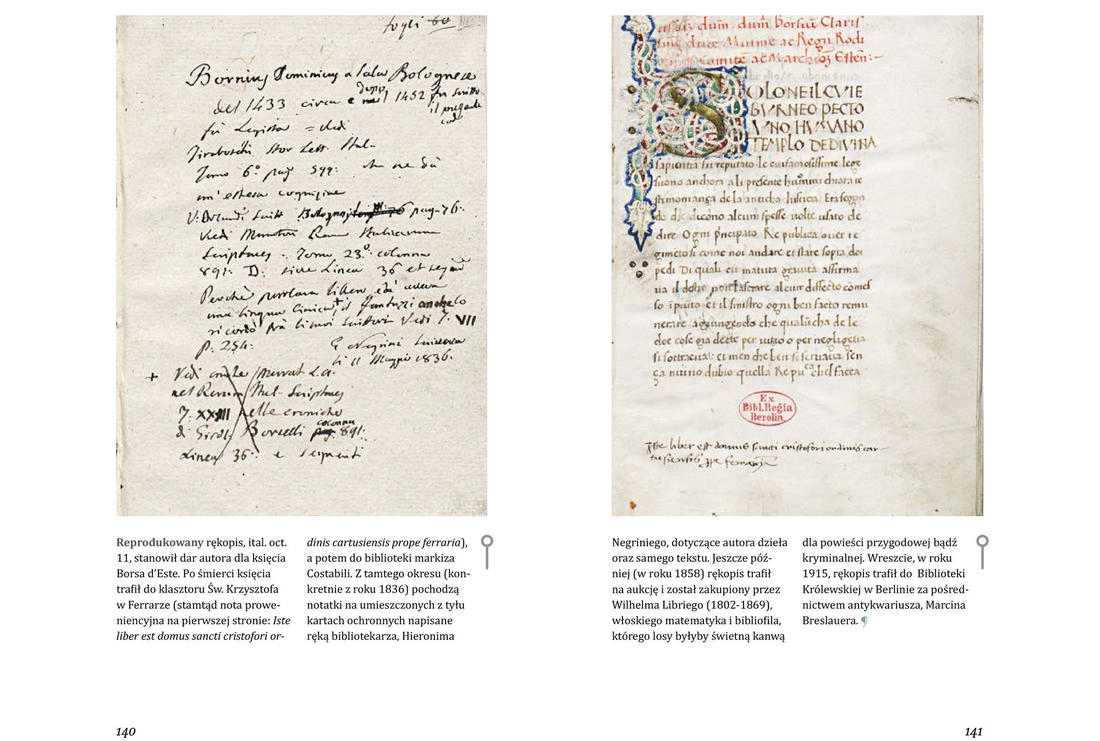 fogli 60
Bornius Dominicus a Sala Bolognese
del 1433 circa e dopo il 1452 fu scritto
il presente
fu Legista = Vedi
Tiraboschi Stor Lett. Ital.
Tomo 6º pag 599: che ne dà
un'estesa cognizione
V. Orlandi Scritt Bolognesi pag. 76.
Vedi Muratori Rerum Italicarum
Scriptores = Tomo 23º colonna
891. D: sive Linea 36 et
Perchè
una lingua il Fantuzzi anche lo
ricordò fra li suoi Scrittori Vedi T. VII
p. 254.
li 11 Maggio 1836.
+ Vedi anche Murrat L.a.
nel Rerum Ital. Scriptores
T. XXIII nelle croniche
di Girol. Borselli colonna 891.
Linea 36: e seguenti
dum dum Borsiu Claris
duce Mutine ac Regii Rodi
Comite ac Marchõz Esteñ:-
SOLONE IL CVIE
BVRNEO PECTO
VNO HVMANO
TEMPLO DE DIVINA
sapientia fu reputato: le cui famosissime lege
suono anchora ali presente humini chiara te
stimonianza de la anticha Iusticia Era segon
do dicono alcuni spesse volte usato de
dire Ogni principato Re publica over re
gimeto si come noi andare et stare sopra doi
pedi Di quali cu matura gravita affirma
va il destro non lassare alcun diffecto comes
so ipuito et il sinistro ogni ben facto remu
nerare agiungendo che qualūcha de le
doe cose gia decte per vitio o per negligetia
si sottraeva: et men che ben si servava sen
ça niuno dubio quella Re puca chel facea
Ex
Bibl. Regia
Berolin.
Iste liber est domus sancti cristofori ordinis car-
tusiensis ppe ferrariã
Reprodukowany rękopis, ital. oct.
11, stanowił dar autora dla księcia
Borsa d’Este. Po śmierci księcia
trafił do klasztoru Św. Krzysztofa
w Ferrarze (stamtąd nota prowe-
niencyjna na pierwszej stronie: Iste
liber est domus sancti cristofori or-
dinis cartusiensis prope ferraria),
a potem do biblioteki markiza
Costabili. Z tamtego okresu (kon-
kretnie z roku 1836) pochodzą
notatki na umieszczonych z tyłu
kartach ochronnych napisane
ręką bibliotekarza, Hieronima
Negriniego, dotyczące autora dzieła
oraz samego tekstu. Jeszcze póź-
niej (w roku 1858) rękopis trafił
na aukcję i został zakupiony przez
Wilhelma Libriego (1802-1869),
włoskiego matematyka i bibliofila,
którego losy byłyby świetną kanwą
dla powieści przygodowej bądź
kryminalnej. Wreszcie, w roku
1915, rękopis trafił do Biblioteki
Królewskiej w Berlinie za pośred-
nictwem antykwariusza, Marcina
Breslauera. ¶
140
141